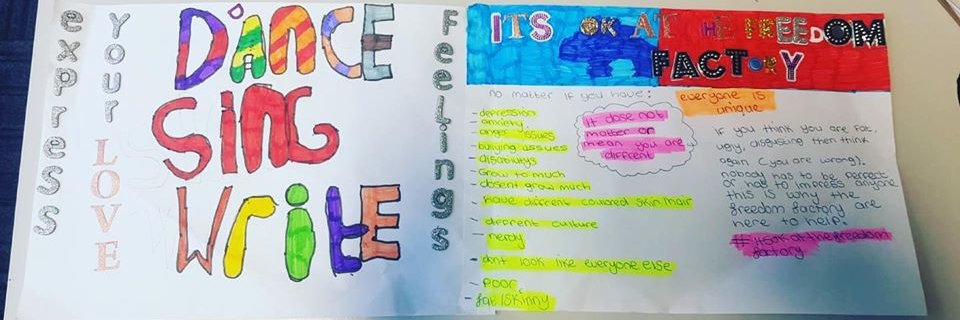 expresS
Your
LOVE
DANCE
SING
WRITE
Feelings
ITS OK AT THE FREEDOM
FACTORY
no matter if you have:
- depression
- anxiety
- anger issues
- bullying issues
- disabilitys
- Grow to much
- dosent grow much
- have diffrent coloured skin/hair
- different culture
- nerdy
- dont look like everyone else
- poor
- fat/skinny
it dose not
matter or
mean you are
different
everyone is
unique
if you think you are fat,
ugly, disgusting then think
again (you are wrong).
nobody has to be perfect
or has to impress anyone
this is why the
freedom factory are
here to help.
# itsok at the freedom
factory